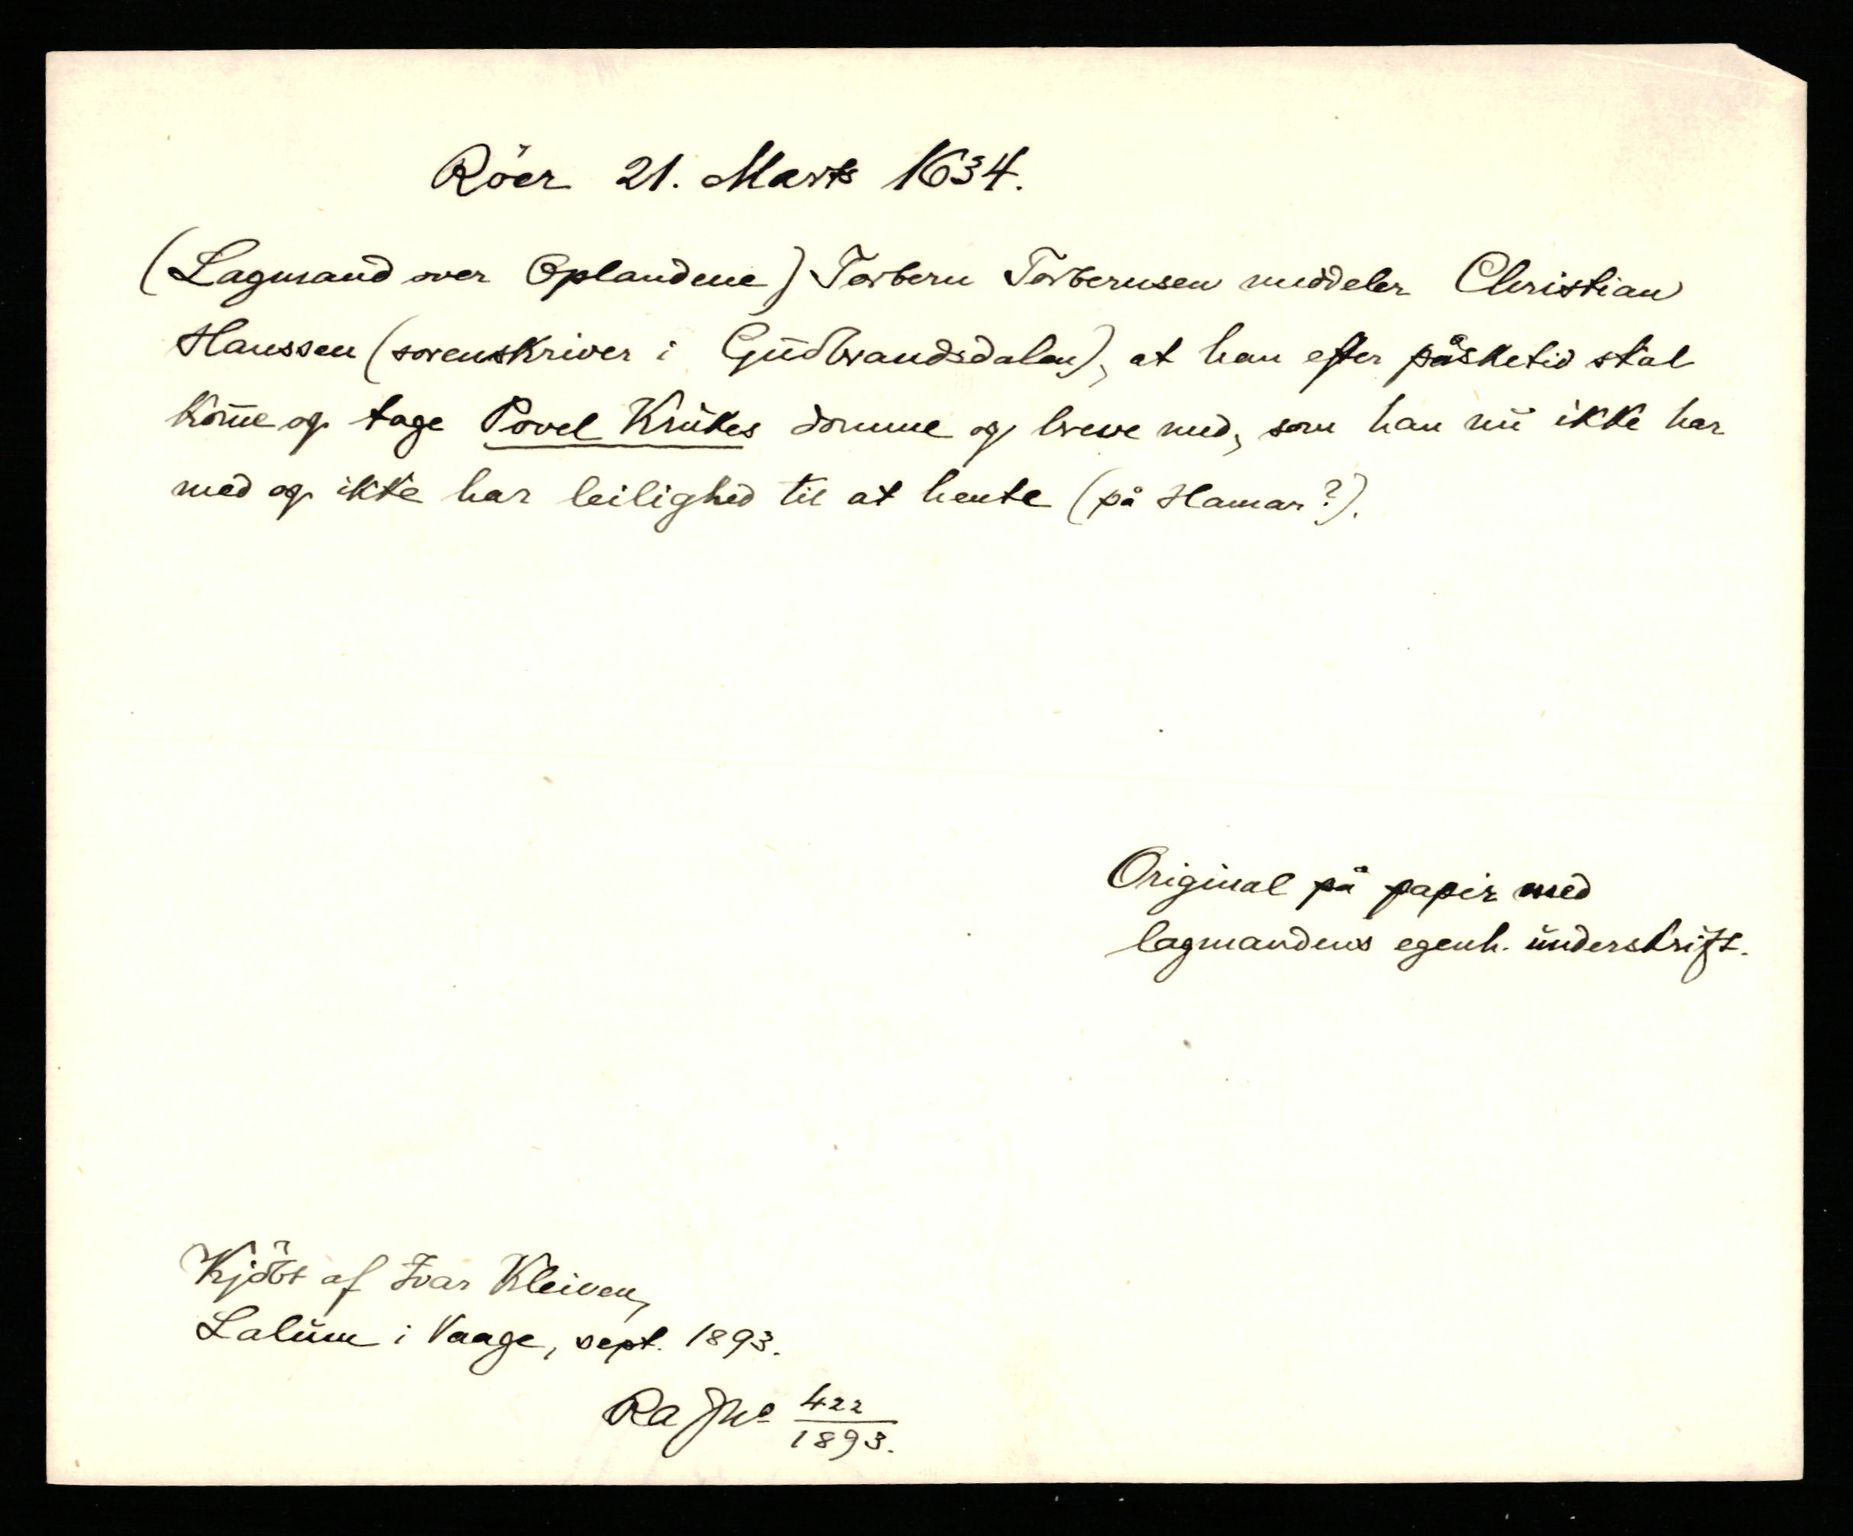 Röer 21. Marts 1634.
(Lagmand over Oplandene) Torbern Torbernsen meddeler Christian
Hanssen (sorenskriver i Gudbrandsdalen), at han efter påsketid skal
kom̄e og tage Povel Krukes domme og breve med, som han nu ikke har
med og ikke har leilighed til at hente (på Hamar?).
Original på papir med
lagmandens egenh. underskrift.
Kjöbt af Ivar Kleiven,
Lalum i Vaage, sept. 1893.
Ra Jno 422/1893.